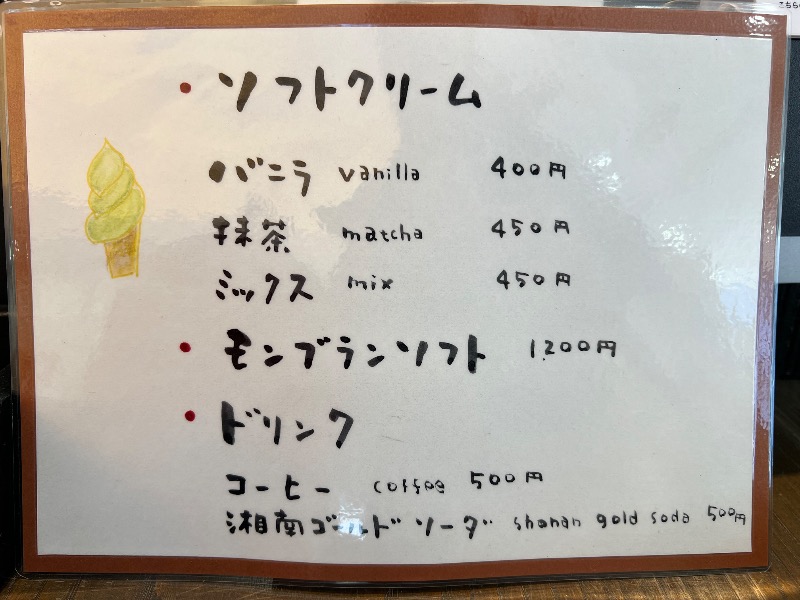 こちら
• ソフトクリーム
バニラ vanilla 400円
抹茶 matcha 450円
ミックス mix 450円
• モンブランソフト 1,200円
• ドリンク
コーヒー coffee 500円
湘南ゴールド ソーダ shonan gold soda 500円